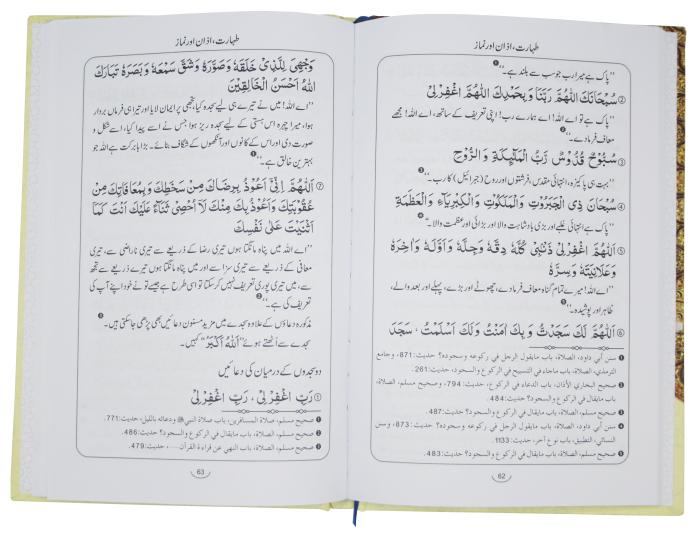 طہارت، اذان اور نماز
”پاک ہے میرا رب جو سب سے بلند ہے۔“
② سُبْحَانَكَ اللّٰهُمَّ رَبَّنَا وَبِحَمْدِكَ اللّٰهُمَّ اغْفِرْلِیْ
”پاک ہے تو اے اللہ! اے ہمارے رب! اپنی تعریف کے ساتھ، اے اللہ! مجھے
معاف فرمادے۔“
③ سُبُّوْحٌ قُدُّوْسٌ رَبُّ الْمَلٰٓئِكَةِ وَ الرُّوْحِ
”بہت ہی پاکیزہ، انتہائی مقدس، فرشتوں اور روح (جبرائیل) کا رب۔“
④ سُبْحَانَ ذِی الْجَبَرُوْتِ وَالْمَلَكُوْتِ وَ الْكِبْرِيَآءِ وَ الْعَظَمَةِ
”پاک ہے انتہائی غلبے اور بڑی بادشاہت والا اور بڑائی اور عظمت والا۔“
⑤ اَللّٰهُمَّ اغْفِرْلِیْ ذَنْۢبِیْ كُلَّهٗ دِقَّهٗ وَجِلَّهٗ وَ اَوَّلَهٗ وَاٰخِرَهٗ
وَ عَلَانِيَتَهٗ وَ سِرَّهٗ
”اے اللہ! میرے تمام گناہ معاف فرمادے، چھوٹے اور بڑے، پہلے اور بعد والے،
ظاہر اور پوشیدہ۔“
⑥ اَللّٰهُمَّ لَكَ سَجَدْتُّ وَ بِكَ اٰمَنْتُ وَ لَكَ اَسْلَمْتُ، سَجَدَ
① سنن أبي داود، الصلاة، باب مايقول الرجل في ركوعه وسجوده؟ حديث: 871، وجامع
الترمذي، الصلاة، باب ماجاء في التسبيح في الركوع والسجود، حديث: 261.
② صحيح البخاري الأذان، باب الدعاء في الركوع، حديث: 794، و صحيح مسلم، الصلاة،
باب مايقال في الركوع و السجود؟ حديث: 484.
③ صحيح مسلم، الصلاة، باب مايقال في الركوع والسجود؟ حديث: 487.
④ سنن أبي داود، الصلاة، باب مايقول الرجل في ركوعه و سجوده؟ حديث: 873، و سنن
النسائي، التطبيق، باب نوع آخر، حديث: 1133.
⑤ صحيح مسلم، الصلاة، باب مايقال في الركوع والسجود؟ حديث: 483.
62
طہارت، اذان اور نماز
وَجْهِیَ لِلَّذِیْ خَلَقَهٗ وَ صَوَّرَهٗ وَ شَقَّ سَمْعَهٗ وَ بَصَرَهٗ تَبَارَكَ
اللّٰهُ اَحْسَنُ الْخَالِقِيْنَ
”اے اللہ! میں نے تیرے ہی لیے سجدہ کیا، تجھی پر ایمان لایا اور تیرا ہی فرماں بردار
ہوا، میرا چہرہ اس ہستی کے لیے سجدہ ریز ہوا جس نے اسے پیدا کیا، اسے شکل و
صورت دی اور اس کے کانوں اور آنکھوں کے شگاف بنائے۔ بڑا بابرکت ہے اللہ جو
بہترین خالق ہے۔“
⑦ اَللّٰهُمَّ اِنِّیْ اَعُوْذُ بِرِضَاكَ مِنْ سَخَطِكَ وَ بِمُعَافَاتِكَ مِنْ
عُقُوْبَتِكَ وَ اَعُوْذُ بِكَ مِنْكَ لَا اُحْصِیْ ثَنَآءً عَلَيْكَ اَنْتَ كَمَا
اَثْنَيْتَ عَلٰی نَفْسِكَ
”اے اللہ میں پناہ مانگتا ہوں تیری رضا کے ذریعے سے تیری ناراضی سے، تیری
معافی کے ذریعے سے تیری سزا سے اور میں پناہ مانگتا ہوں تیرے ذریعے سے تجھ
سے، میں تیری پوری تعریف نہیں کر سکتا تو اسی طرح ہے جیسے تو نے خود اپنے آپ کی
تعریف کی ہے۔“
مذکورہ دعاؤں کے علاوہ سجدے میں مزید مسنون دعائیں بھی پڑھی جاسکتی ہیں۔
سجدے سے اٹھتے ہوئے ”اَللّٰهُ اَكْبَرُ“ کہیں۔
دو سجدوں کے درمیان کی دعائیں
① رَبِّ اغْفِرْ لِیْ، رَبِّ اغْفِرْ لِیْ
① صحيح مسلم، صلاة المسافرين، باب صلاة النبيﷺ ودعائه بالليل، حديث: 771.
② صحيح مسلم، الصلاة، باب مايقال في الركوع و السجود؟ حديث: 486.
③ صحيح مسلم، الصلاة، باب النهي عن قراءة القرآن...، حديث: 479.
63